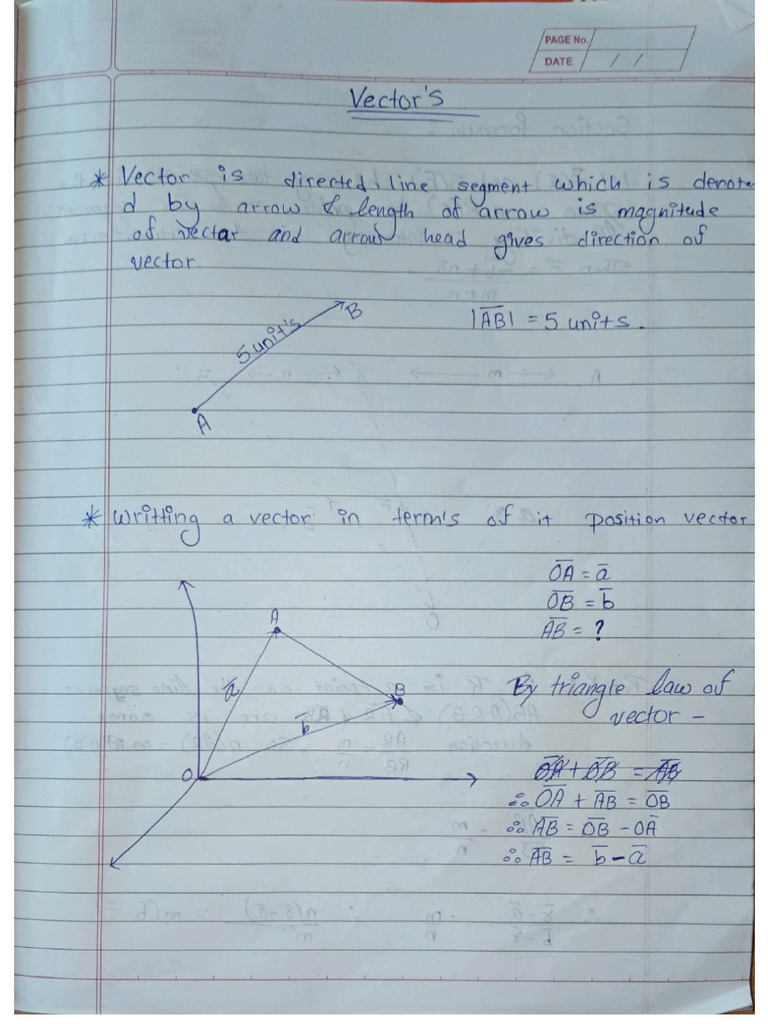 PAGE No.
DATE / /
Vector's
* Vector is directed line segment which is denote
d by arrow & length of arrow is magnitude
of vector and arrow head gives direction of
vector.
5 unit's
B
A
|A̅B̅| = 5 units.
* Writting a vector in term's of it position vector
O̅A̅ = a̅
O̅B̅ = b̅
A̅B̅ = ?
A
a̅
B
b̅
O
By triangle law of
vector -
O̅A̅ + O̅B̅ = A̅B̅
∴ O̅A̅ + A̅B̅ = O̅B̅
∴ A̅B̅ = O̅B̅ - OA̅
∴ A̅B̅ = b̅ - a̅